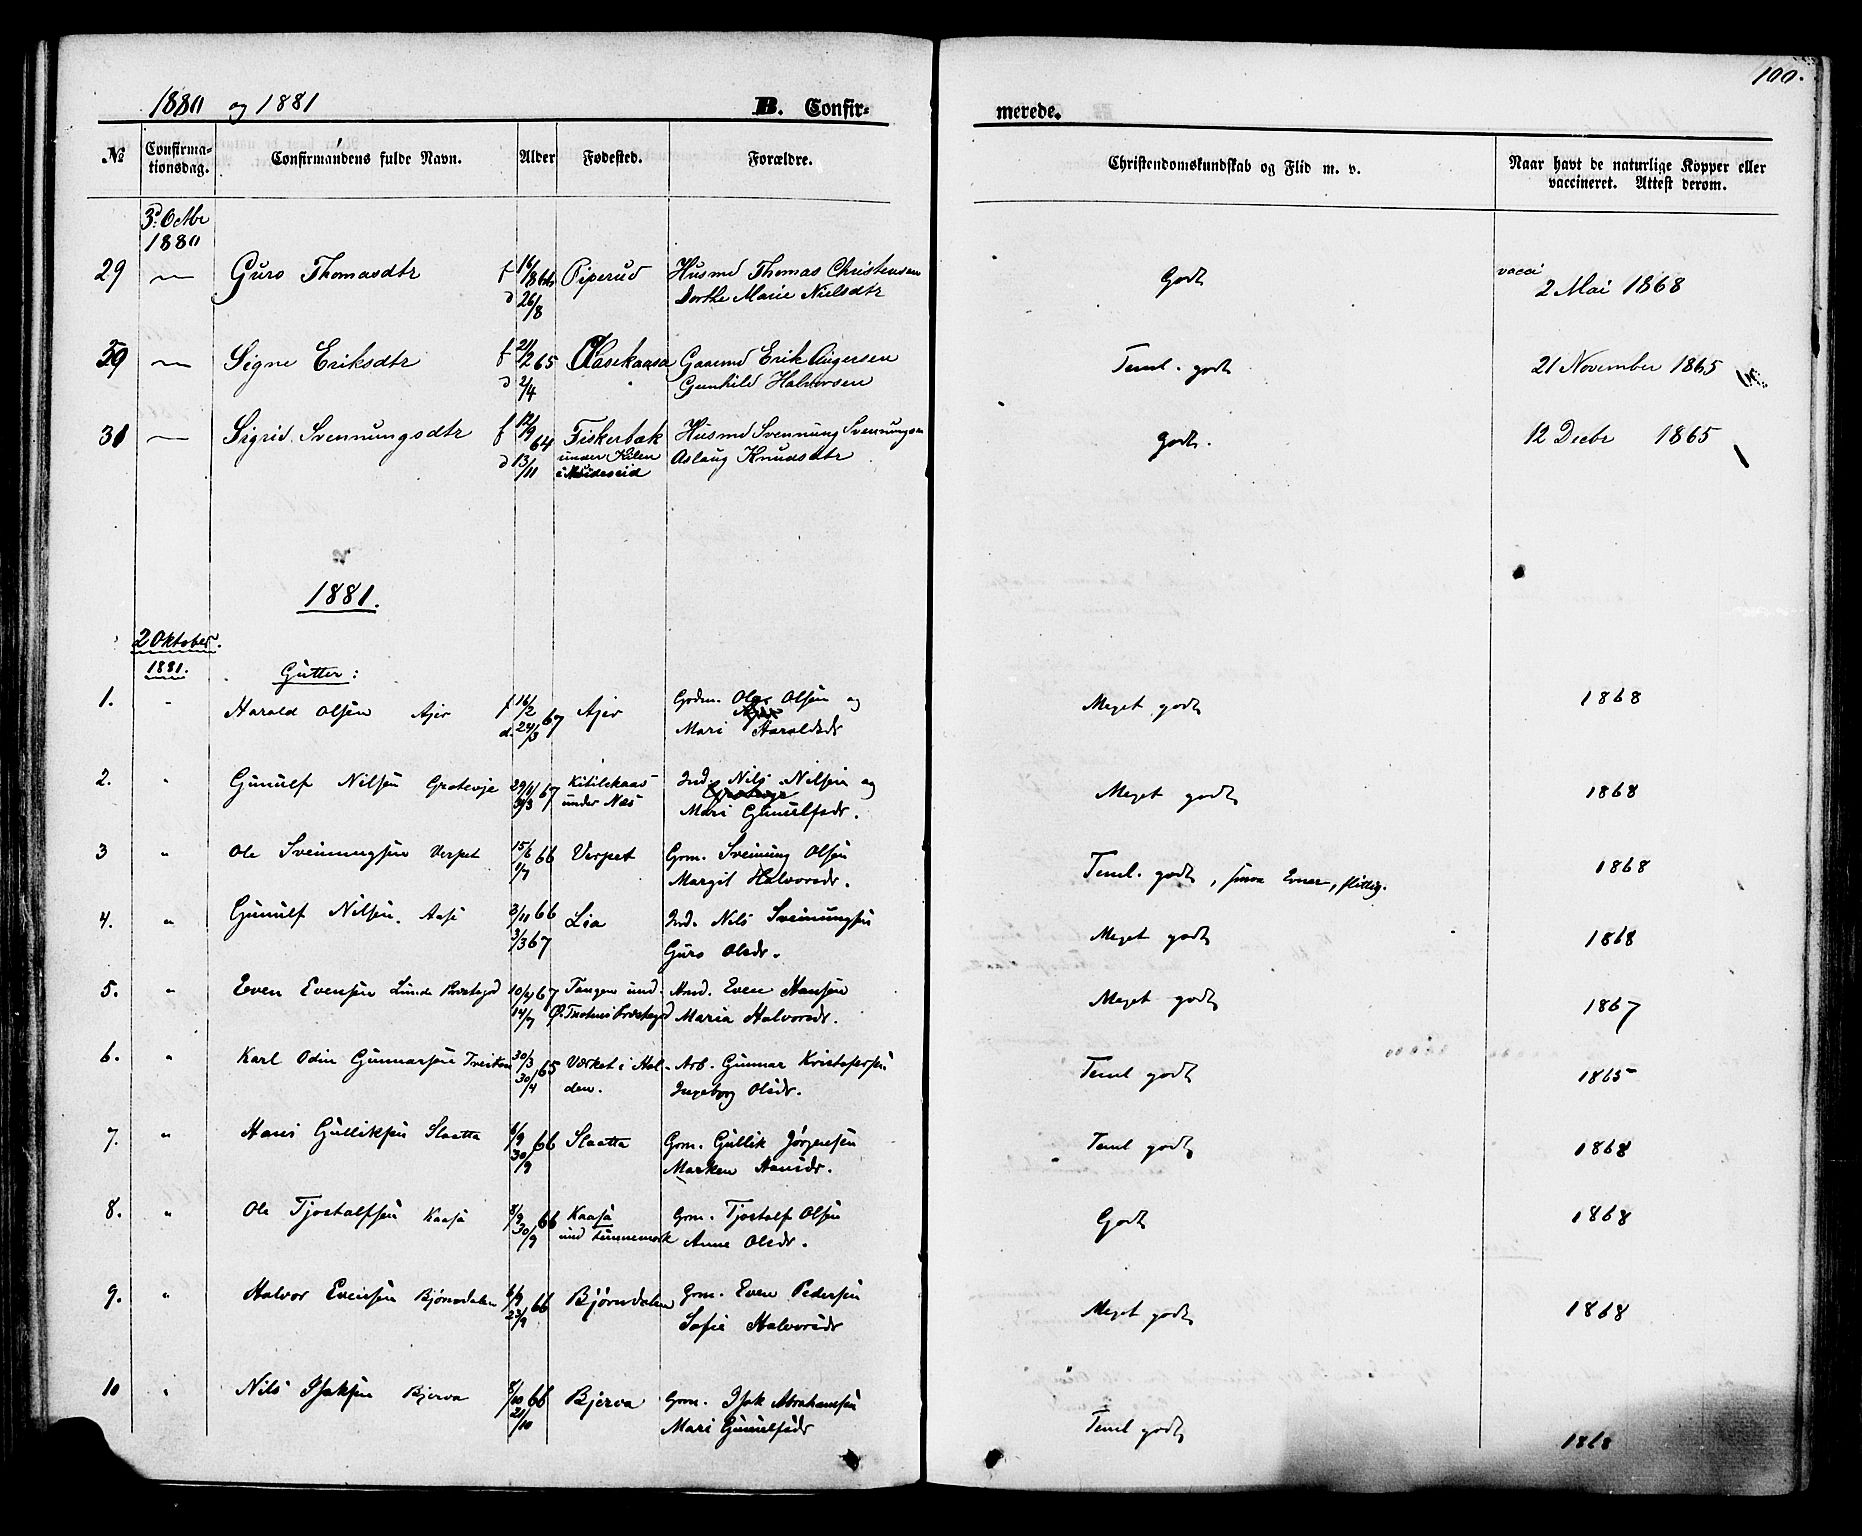 1880 og 1881
B. Confir-
merede.
100.
№ Confirma-tionsdag. Confirmandens fulde Navn. Alder Fødested. Forældre. Christendomskundskab og Flid m. v. Naar havt de naturlige Kopper eller vaccineret. Attest derom.
3. Octbr
1880
29 — Guro Thomasdtr f 16/8 66 Piperud Husmd Thomas Christensen Godt vacci 2 Mai 1868
d 26/8 Dorthe Marie Nielsdtr
30 — Signe Eriksdtr f 21/2 65 Aasekaasa Gaamd Erik Augersen Teml. godt 21 November 1865
d 2/4 Gunhild Halvorsen
31 — Sigrid Svennungsdtr f 12/9 64 Fiskerbæk Husmd Svennung Svennungsen godt. 12 Decbr 1865
d 13/11 under Kilen Aslaug Knudsdtr
i Hvideseid
1881.
2 Oktober.
1881. Gutter:
1. Harald Olsen Ajer f 16/2 67 Ajer Grdm. Ole Olsen og Meget godt 1868
d. 24/3 Mari Haraldsdr
2. " Gunulf Nilsen Grotevje 29/1 67 Kitilskaas Ind. Nils Nilsen og Meget godt 1868
31/3 under Næs Mari Gunulfsdr.
3 " Ole Sveinungsen Verpet 15/6 66 Verpet Grm. Sveinung Olsen Teml. godt, smaa Evner, flittig. 1868
1/7 Margit Halvorsdr.
4. " Gunulf Nilsen Aase 2/11 66 Lia Ind. Nils Sveinungsen Meget godt 1868
3/3 67 Guro Olsdr.
5. " Even Evensen Lunde Prestegd 10/4 67 Tangen und. Hmd. Even Hansen Meget godt 1867
14/7 Ø. Tnotens Prestegd Maria Halvorsdr.
6. " Karl Odin Gunnarsen Treitan 30/3 65 Værket i Hol- Arb. Gunnar Kristofersen Teml godt 1865
30/4 den. Ingeborg Olsdr.
7. " Hans Gulliksen Slaatta 6/9 66 Slaatta Grm. Gullik Jørgensen Teml godt 1868
30/9 Marken Hansdr.
8. " Ole Tjostolfsen Kaasa 8/9 66 Kaasa Grm. Tjostolf Olsen Godt 1868
30/9 und Lunnemoch Anne Olsdr.
9. " Halvor Evensen Bjørndalen 6/9 66 Bjørndalen Grm. Even Pedersen Meget godt 1868
23/9 Sofie Halvorsdr
10 " Nils Isaksen Bjerva 8/10 66 Bjerva Grm. Isak Abrahamsen Teml godt 1868
21/10 Mari Gunulfsdr